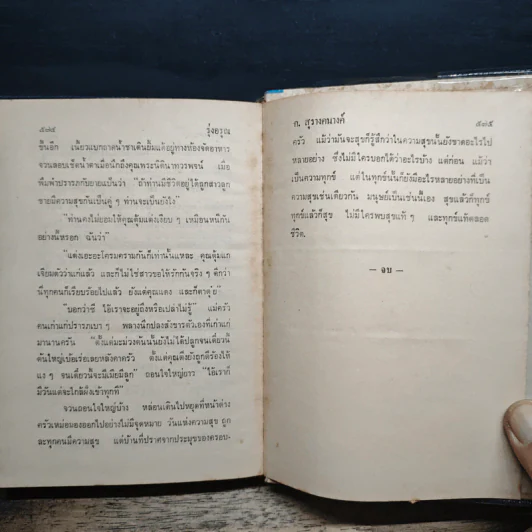 ๕๗๔ รุ่งอรุณ
ขึ้นอีก เนี้ยวแบกถาดน้ำชาเดินยิ้มแต้อยู่ทางห้องจัดอาหาร
จวนสอบเช็ดน้ำตาเมื่อนึกถึงคุณพระนิตินาทวรพจน์ เมื่อ
พิมพ์ารำภารกับยายเป็นว่า “ถ้าท่านมีชีวิตอยู่ได้ลูกสาวลูก
ชายมีความสุขกันเป็นคู่ ๆ ท่านจะเป็นยังไง”
“ท่านคงไม่ยอมให้คุณตุ้มแต่งเงียบ ๆ เหมือนหนีกัน
อย่างนี้หรอก ฉันว่า”
“แต่งเอะอะโครมครามก็แก่เท่านั้นแหละ คุณตุ้มแก
เจียมตัวว่าแก่แล้ว และก็ไม่ใช่สาวขอให้รักกันจริง ๆ ดีกว่า
นี่ทุกคนก็เรียบร้อยไปแล้ว ยังแต่คุณแดง และก็ตาดุ่ย”
“บอกว่าซี ไอ้เราจะอยู่ถึงหรือเปล่าไม่รู้” แม่ครัว
คนเก่าแก่ปรารภเบา ๆ พลางนึกปลงสังขารตัวเองที่เก่าแก่
มานานครัน “ตั้งแต่มะม่วงต้นนั้นยังไม่ได้ปลูกจนเดี๋ยวนี้
ต้นใหญ่เบ้อเร่อเลยหลังคาครัว ตั้งแต่คุณดิ่งยังถูกตีร้องไห้
แง ๆ จนเดี๋ยวนี้จะมีเมียมีลูก” ถอนใจใหญ่ยาว “ไอ้เราก็
มีวันแต่จะใกล้ฝั่งเข้าทุกที”
จวนถอนใจใหญ่บ้าง หล่อนเดินไปหยุดที่หน้าต่าง
ครัวเหม่อมองออกไปอย่างไม่มีจุดหมาย วันแห่งความสุข ถูก
ละทุกคนมีความสุข แต่บ้านที่ปราศจากประมุขของครอบ-
ก. สุรางคนางค์ ๕๗๕
ครัว แม้ว่ามันจะสุขก็รู้สึกว่าในความสุขนั้นยังขาดอะไรไป
หลายอย่าง ซึ่งไม่มีใครบอกได้ว่าอะไรบ้าง แต่ก่อน แม้ว่า
เป็นความทุกข์ แต่ในทุกข์นั้นก็ยังมีอะไรหลายอย่างที่เป็น
ความสุขเช่นเดียวกัน มนุษย์เป็นเช่นนี้เอง สุขแล้วก็ทุกข์
ทุกข์แล้วก็สุข ไม่มีใครพบสุขแท้ ๆ และทุกข์แท้ตลอด
ชีวิต.
— จบ —